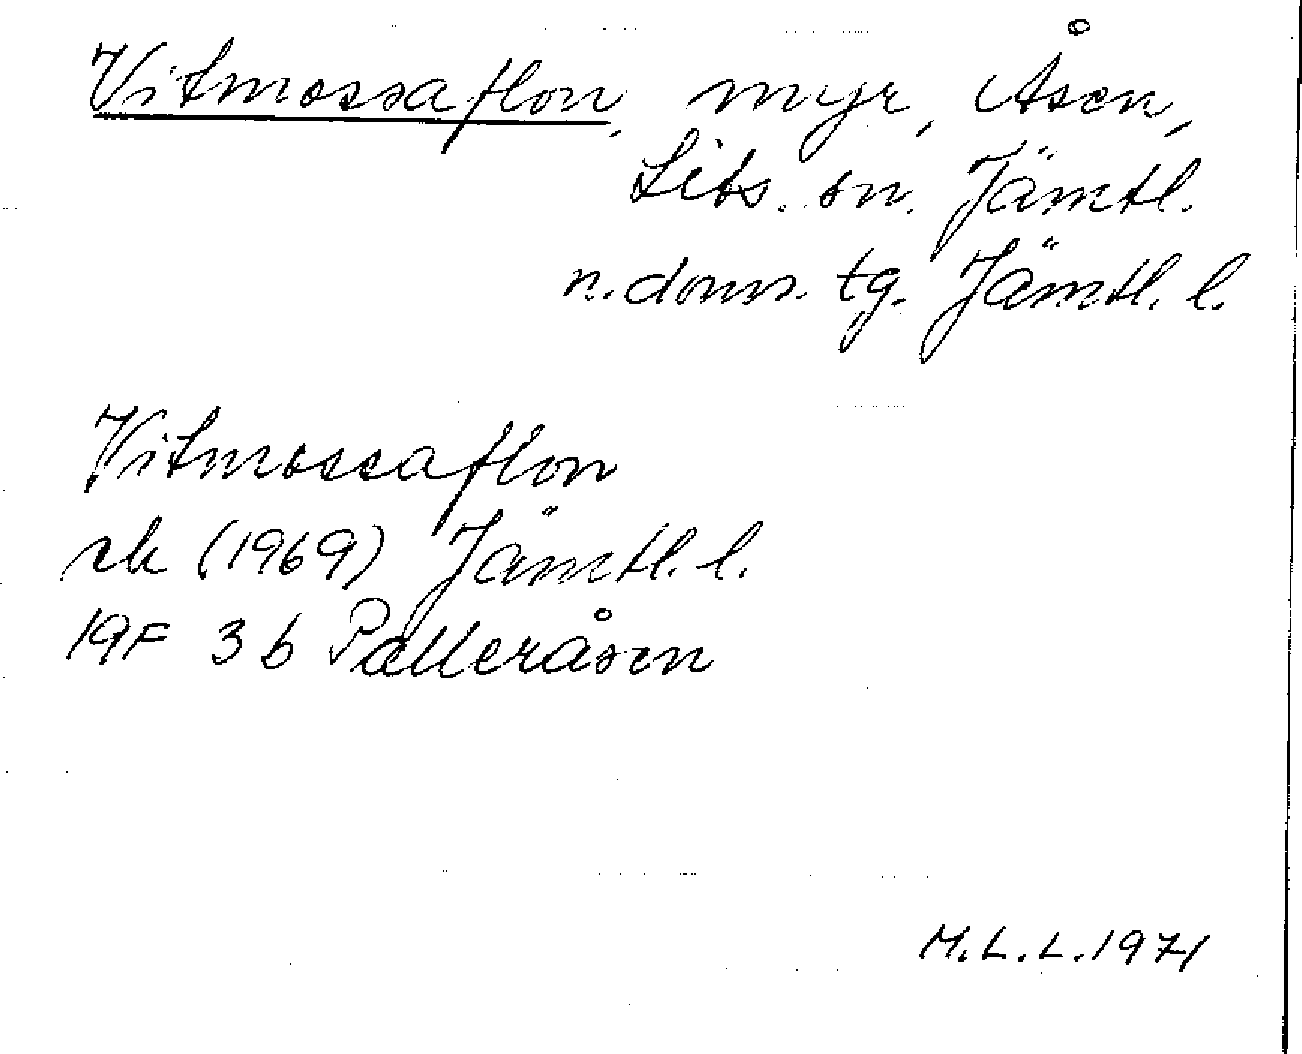 Vitmossaflon, myr, Åsen,
Lits. sn. Jämtl.
n. doms. tg. Jämtl. l.
Vitmossaflon
rk (1969) Jämtl. l.
19F 3b Palleråsen
M.L.L. 1971